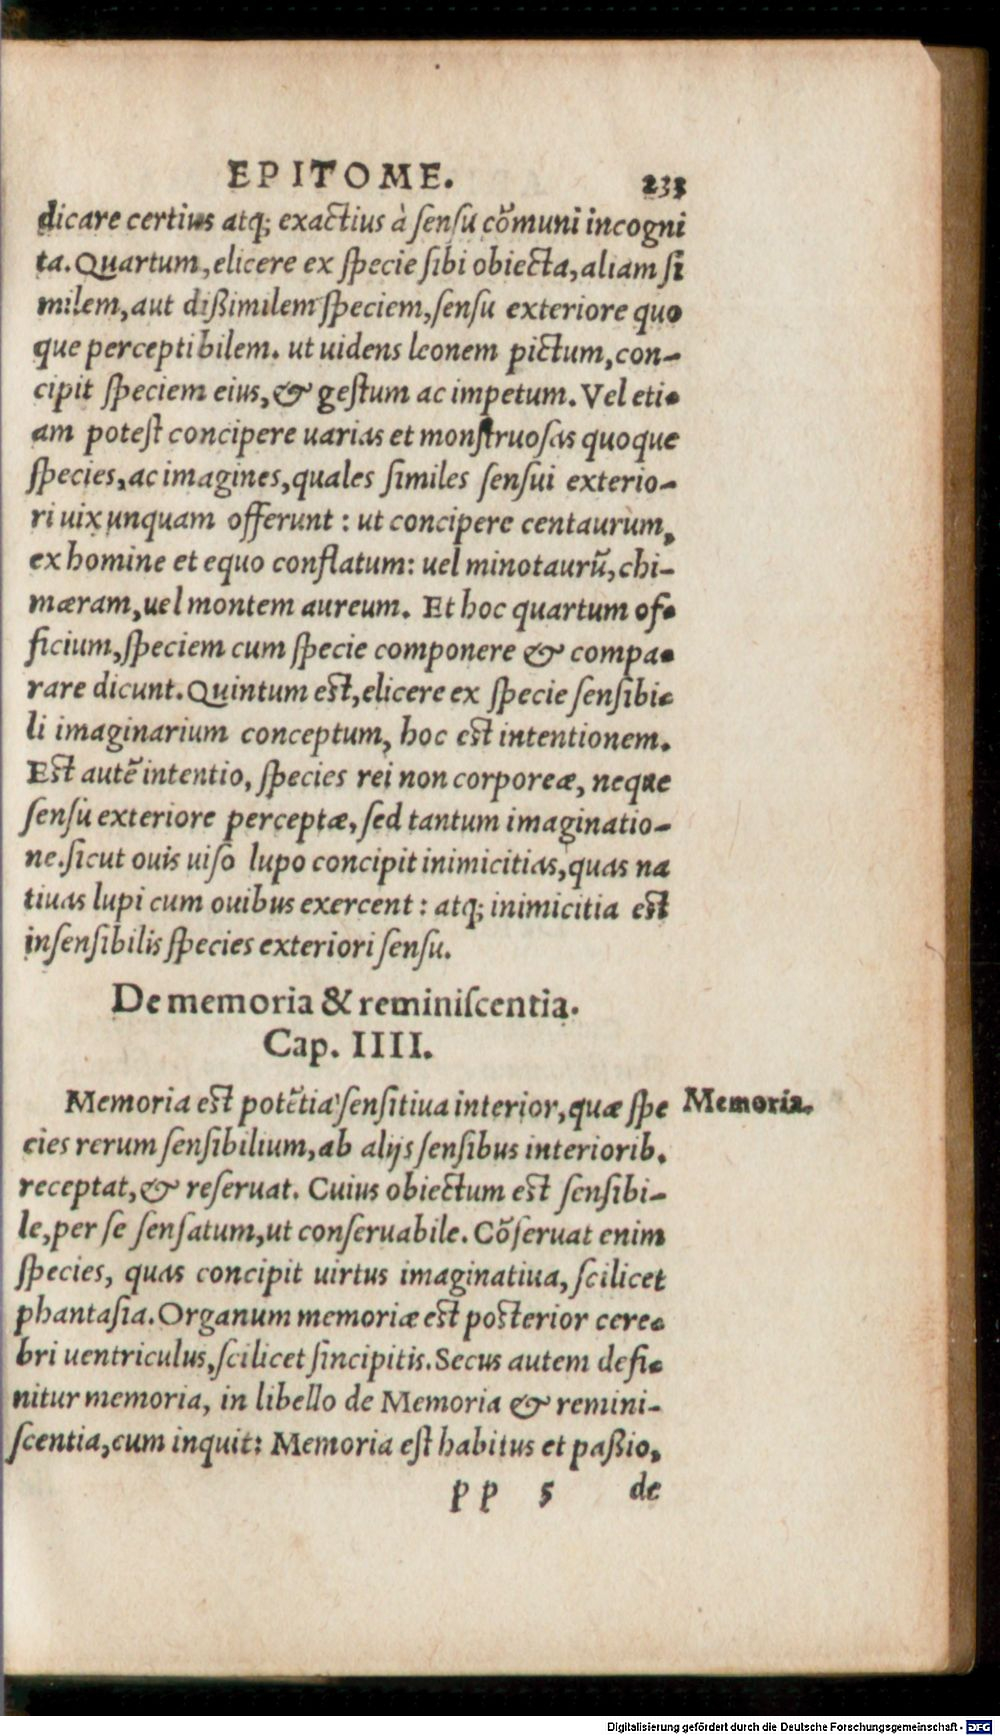 EPITOME. 233
dicare certius atq; exactius à sensu cõmuni incogni
ta. Quartum, elicere ex specie sibi obiecta, aliam si
milem, aut dißimilem speciem, sensu exteriore quo
que perceptibilem. ut uidens leonem pictum, con-
cipit speciem eius, & gestum ac impetum. Vel eti-
am potest concipere uarias et monstruosas quoque
species, ac imagines, quales similes sensui exterio-
ri uix unquam offerunt: ut concipere centaurum,
ex homine et equo conflatum: uel minotaurũ, chi-
mæram, uel montem aureum. Et hoc quartum of-
ficium, speciem cum specie componere & compa-
rare dicunt. Quintum est, elicere ex specie sensibi-
li imaginarium conceptum, hoc est intentionem.
Est autẽ intentio, species rei non corporeæ, neque
sensu exteriore perceptæ, sed tantum imaginatio-
ne. sicut ouis uiso lupo concipit inimicitias, quas na
tiuas lupi cum ouibus exercent: atq; inimicitia est
insensibilis species exteriori sensu.
De memoria & reminiscentia.
Cap. IIII.
Memoria est potẽtia sensitiua interior, quæ spe
Memoria.
cies rerum sensibilium, ab alijs sensibus interiorib.
receptat, & reseruat. Cuius obiectum est sensibi-
le, per se sensatum, ut conseruabile. Cõseruat enim
species, quas concipit uirtus imaginatiua, scilicet
phantasia. Organum memoriæ est posterior cere-
bri uentriculus, scilicet sincipitis. Secus autem defi-
nitur memoria, in libello de Memoria & remini-
scentia, cum inquit: Memoria est habitus et paßio,
pp 5 de
Digitalisierung gefördert durch die Deutsche Forschungsgemeinschaft - DFG